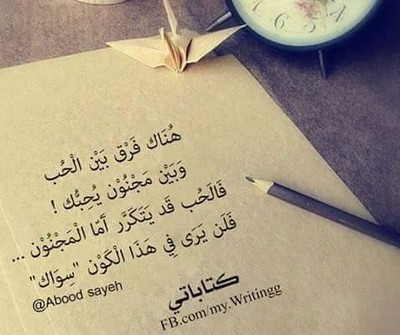 هُنَاك فَرْق بَيْن الْحُب
وَبَيْن مَجْنُوْن يُحِبُّك !
فَالْحُب قَد يَتَكَرَّر أَمَّا الْمَجْنُوْن ...
فَلَن يَرَى فِي هَذَا الْكَوْن "سِوَاك"
@Abood sayeh
كتاباتي
FB.com/my.Writingg